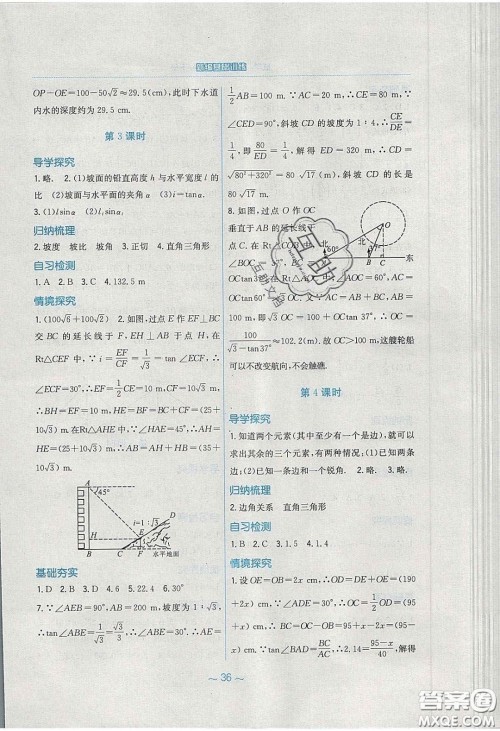 新编基础训练
OP-OE=100-50√2≈29.5(cm),此时下水道
内水的深度约为 29.5 cm.
第 3 课时
导学探究
1.略. 2.(1)坡面的铅直高度 h 与水平宽度 l 的
比 (2)坡面与水平面的夹角 α (3)i=tanα
3.(1)lsinα
归纳梳理
2.坡度 坡比 坡角 3.正切 4.直角三角形
自习检测
1.A 2.B 3.C 4.132.5 m
情境探究
1.(100√6+100√2) 2.如图,过点 E 作 EF⊥BC
交 BC 的延长线于 F,EH⊥AB 于点 H,在
Rt△CEF 中,∵i=EF/CF=1/√3=tan∠ECF,
∴∠ECF=30°,∴EF=1/2CE=10 m,CF=10√3 m,
∴BH=EF=10 m,HE=BF=BC+CF=(25+
10√3)m.在 Rt△AHE 中,∵∠HAE=45°,∴AH=
HE=(25+10√3)m,∴AB=AH+HB=(35+
10√3)m.
A
45°
i=1:√3
D
E
H
B
C
F
水平地面
基础夯实
1.D 2.B 3.D 4.6 5.22.4 6.30°
7.∵∠AEB=90°,AB=200 m,坡度为 1∶√3,
∴tan∠ABE=1/√3=√3/3,∴∠ABE=30°.∴AE=
1/2AB=100 m.∵AC=20 m,∴CE=80 m.∵
∠CED=90°,斜坡 CD 的坡度为 1∶4,∴CE/DE=
1/4,即 80/ED=1/4,解得 ED=320 m,∴CD=
√(80²+320²)=80√17(m),∴斜坡 CD 的长是
80√17 m.
8.如图,过点 O 作 OC
垂直于 AB 的延长线于
点 C.在 Rt△COB 中,
∠BOC=37°,BC=
OCtan37°.在 Rt△AOC
O
北
北
60°
A
B
C
东
互助文库
∴100+OCtan37°=√3OC,∴OC=
100/(√3-tan37°)≈102.2(m).故 OC>100 m,这艘轮船
可以不改变航向,不会触礁.
第 4 课时
导学探究
1.知道两个元素(其中至少有一个是边),就可
以求出其余的三个元素,有两种情况:(1)已知两
条边;(2)已知一条边和一个锐角. 2.略. 3.略.
归纳梳理
2.边角关系 直角三角形
自习检测
1.B 2.C 3.1.5 4.1.4
情境探究
1.设 OE=OB=2x cm,∴OD=DE+OE=(190
+2x)cm.∵∠ADE=30°,∴OC=1/2OD=(95+
x)cm,∴BC=OC-OB=95+x-2x=(95-
x)cm.∵tan∠BAD=BC/AC,∴2.14≈(95-x)/40,解得
～ 36 ～
答案圈
MXQE.COM